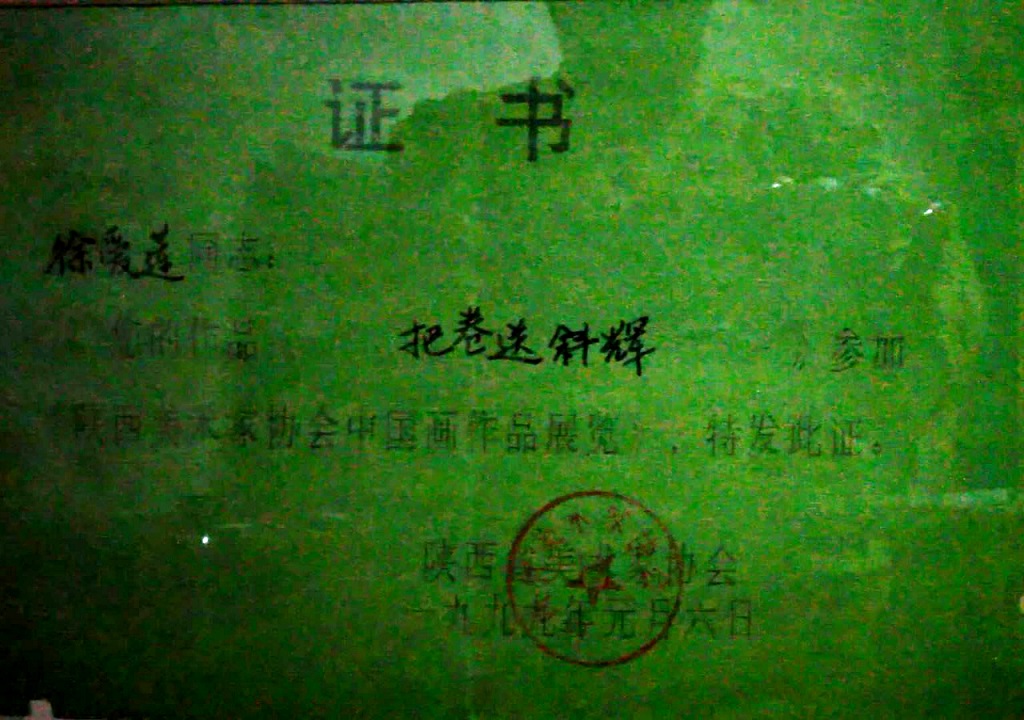 证 书
徐爱莲同志：
你的作品 把卷送斜辉 》参加
陕西美术家协会中国画作品展览》，特发此证。
陕西省美术家协会
一九九九年元月六日